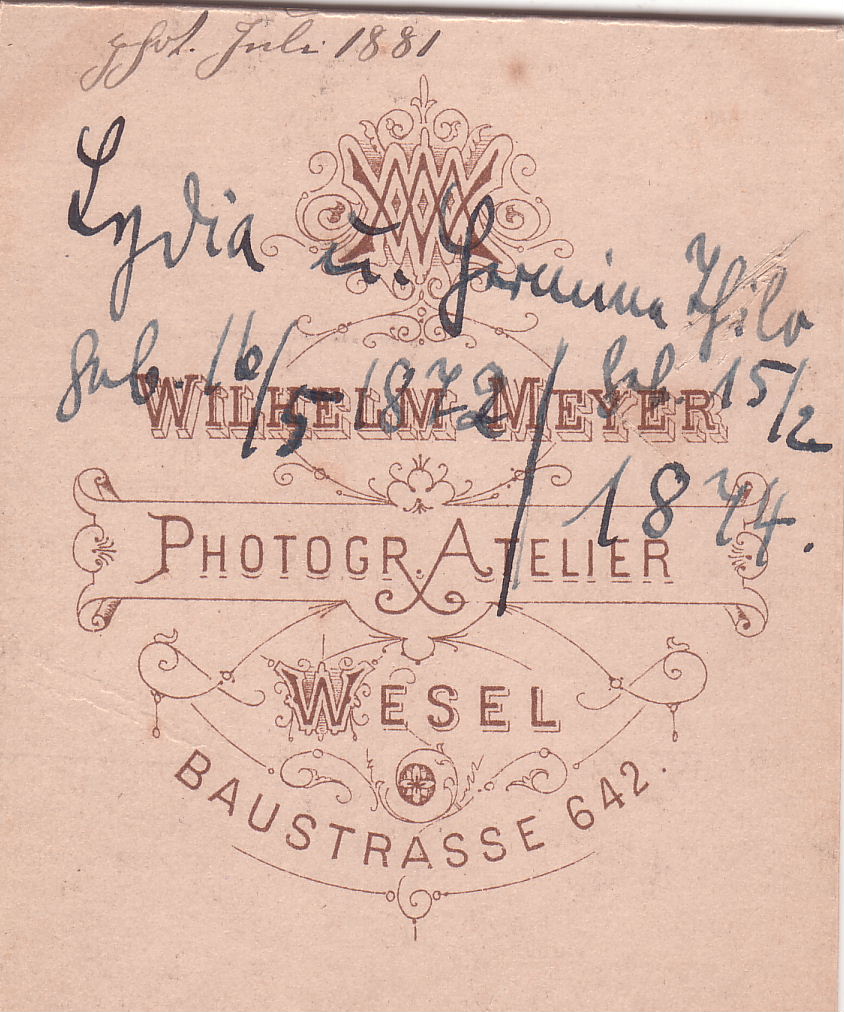 phot. Juli 1881
Lydia u. Hermine Thilo
geb. 16/5 1872 / geb. 15/2
1874.
WILHELM MEYER
PHOTOGR. ATELIER
WESEL
BAUSTRASSE 642.